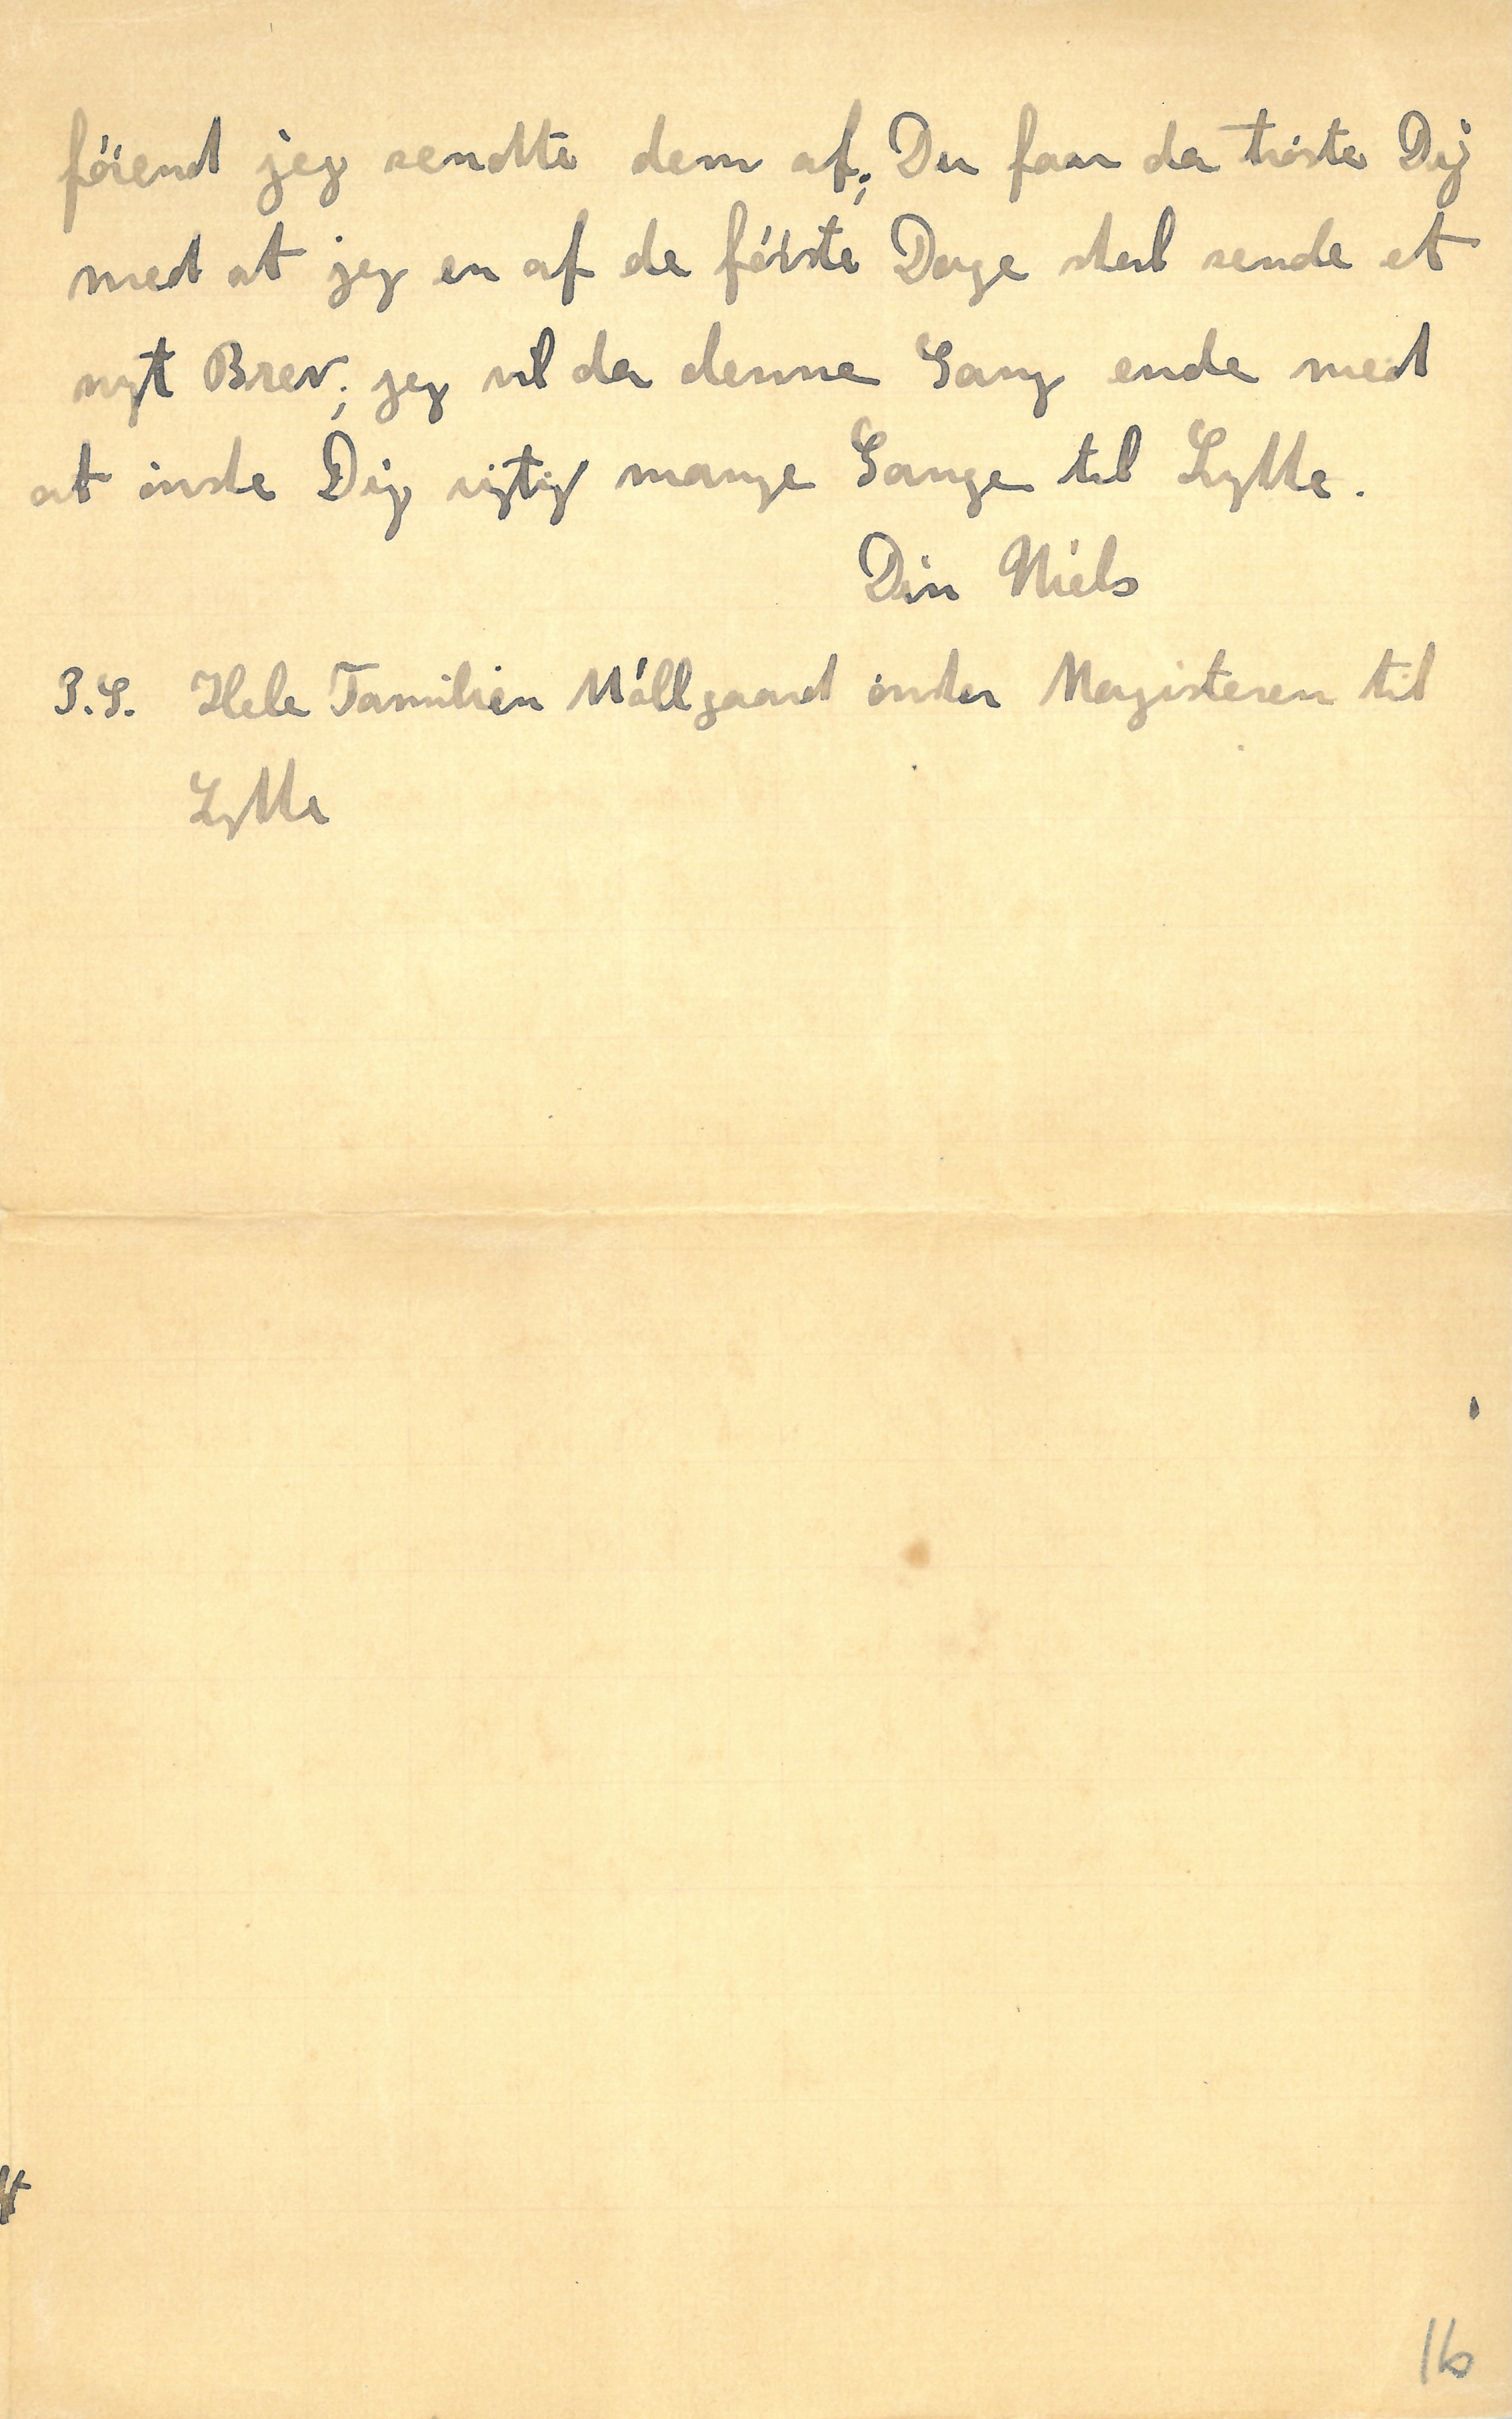 förend jeg sendte dem af; Du faar da tröste Dig
med at jeg en af de förste Dage skal sende et
nyt Brev; jeg vil da denne Gang ende med
at önske Dig rigtig mange Gange til Lykke.
Din Niels
P.S. Hele Familien Möllgaard önsker Magisteren til
Lykke
16